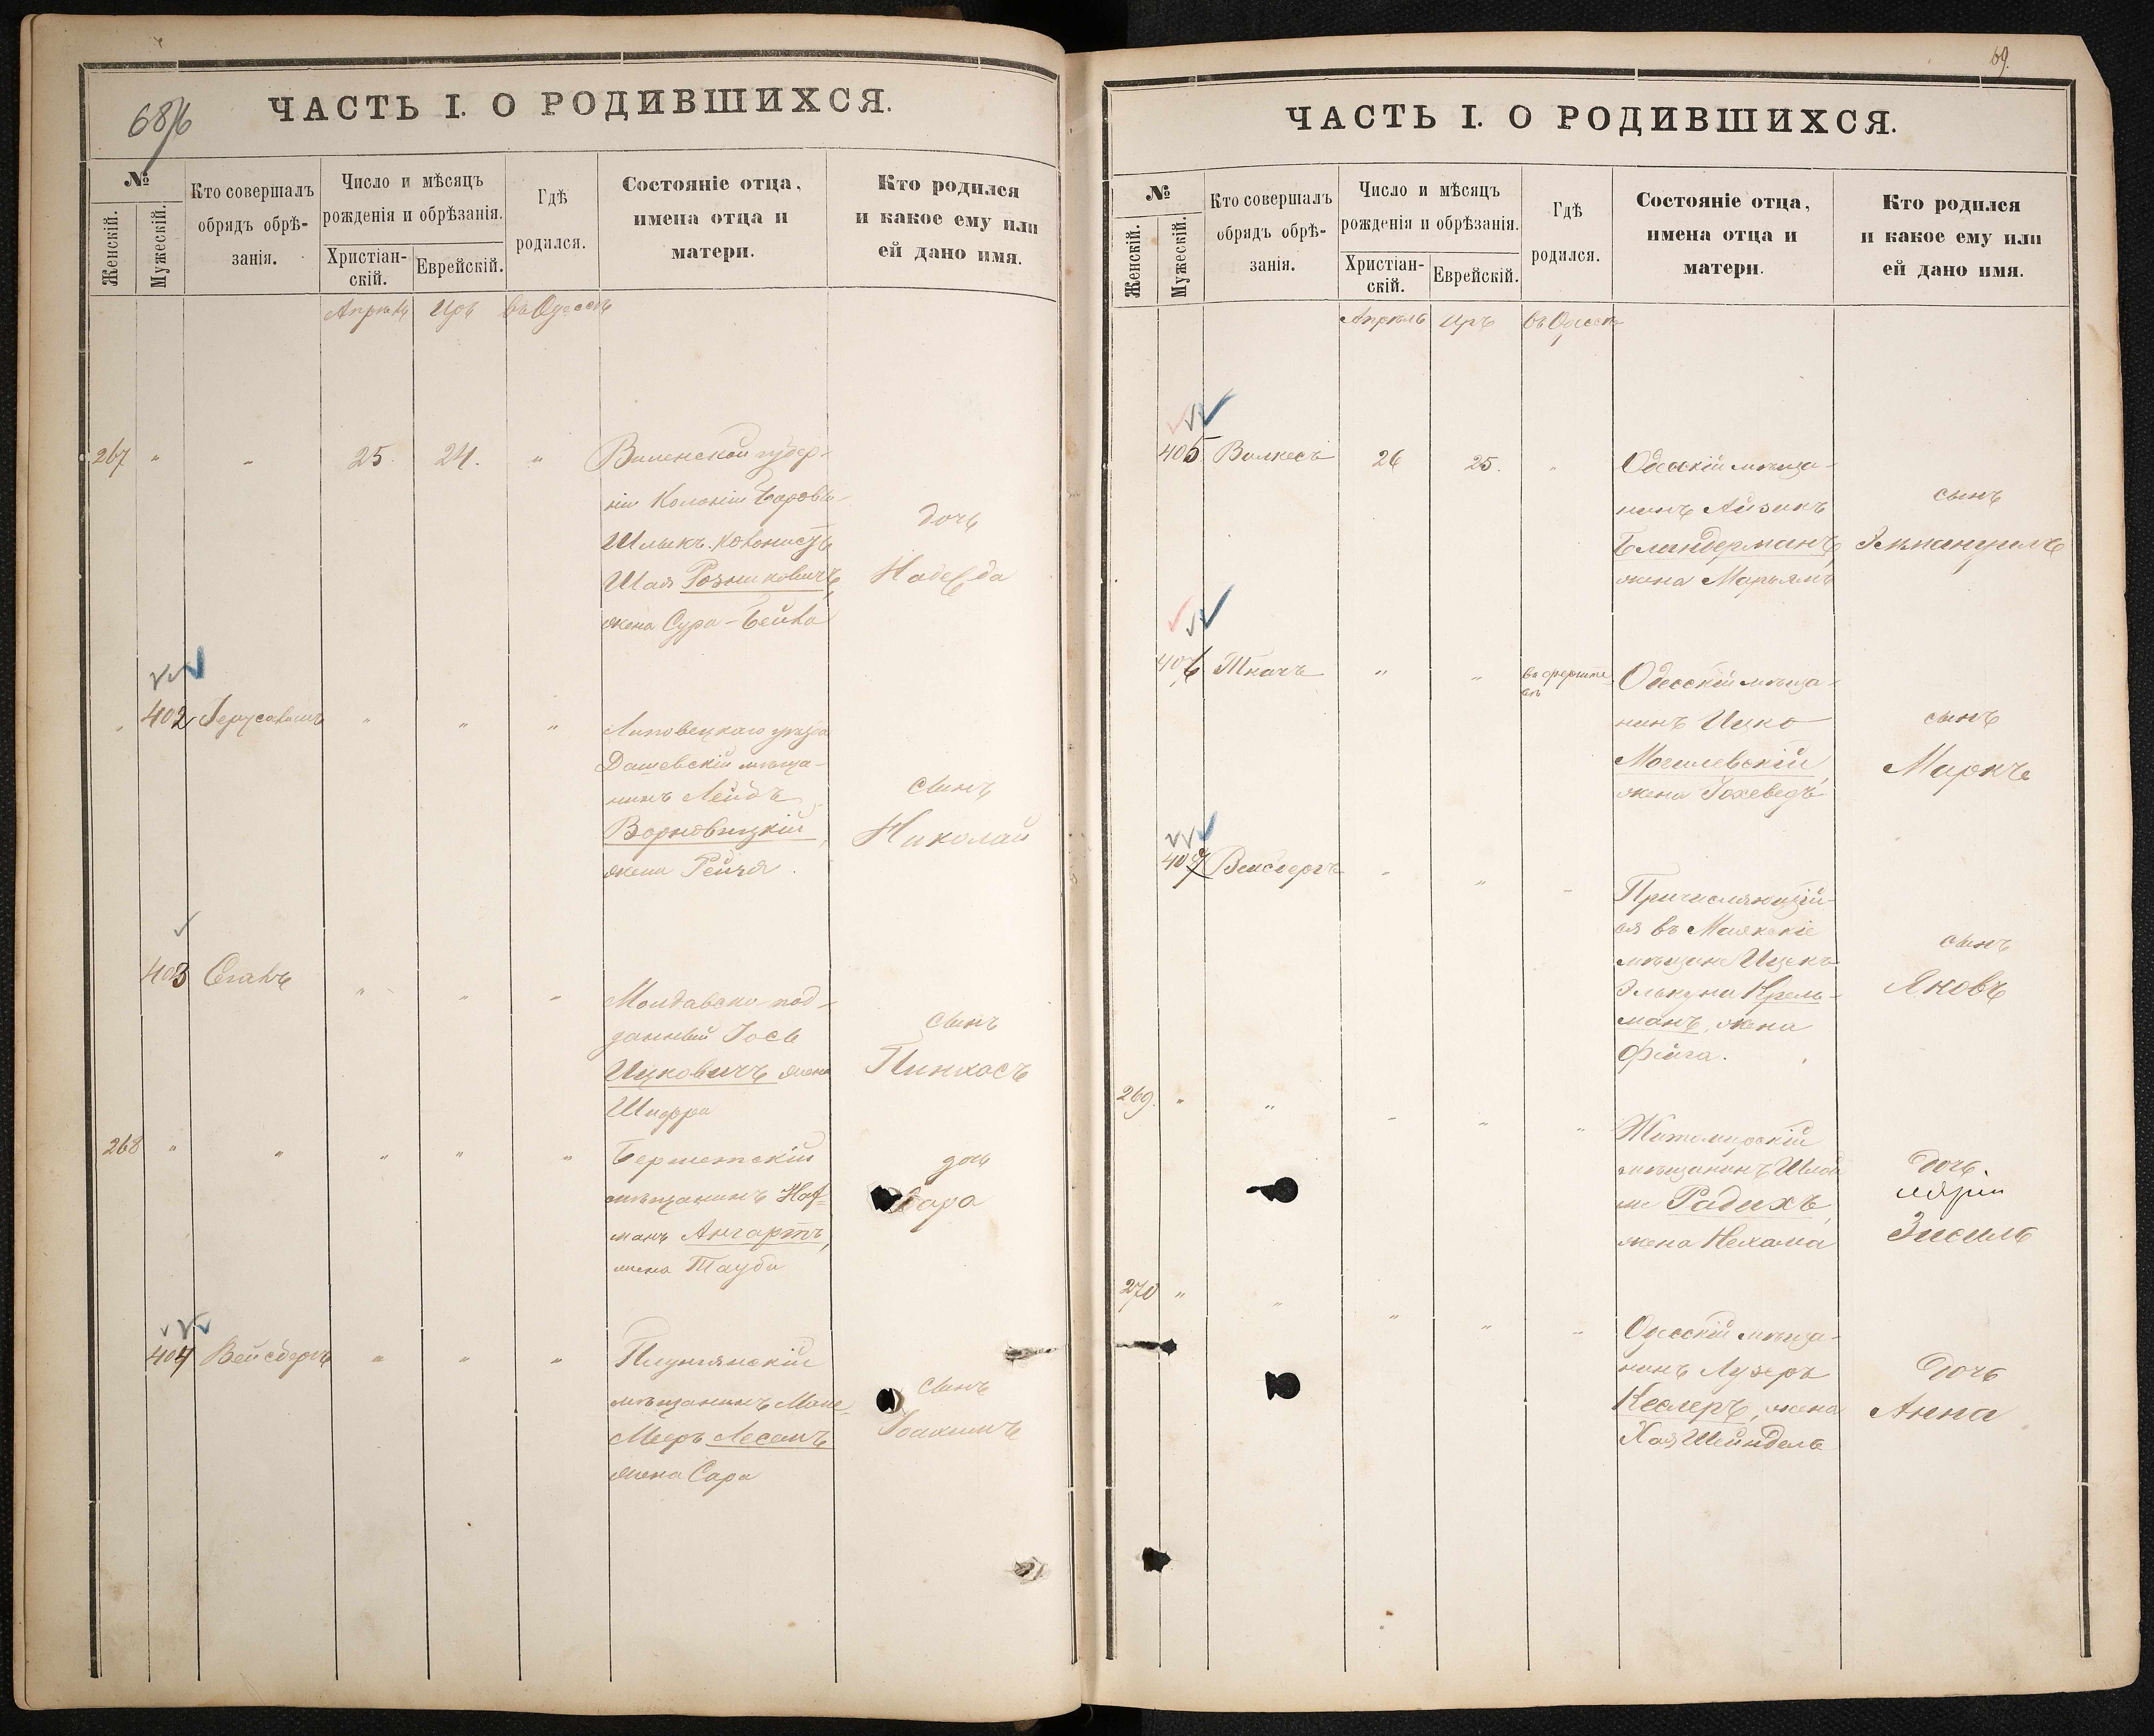 68/6
ЧАСТЬ I. О РОДИВШИХСЯ.
№
Женскій.
Мужескій.
Кто совершалъ
обрядъ обрѣ-
занія.
Число и мѣсяцъ
рожденія и обрѣзанія.
Христіан-
скій.
Еврейскій.
Гдѣ
родился.
Состояніе отца,
имена отца и
матери.
Кто родился
и какое ему или
ей дано имя.
Апрель Иръ въ Одессѣ
267 " " 25. 24. " Виленской губер-
ніи Колоніи
колонистъ
Шая Розниковичъ,
жена Сура-Бейла
дочь
Надежда
402 " " "
Липовецкаго уѣзда
Дашевскій мѣща-
нинъ Лейбъ
Ворновицкій,
жена Рейзя.
сынъ
Николай
403 Сегалъ " " "
Молдавско под-
данный Іось
Ицковичъ жена
Шифра
сынъ
Пинхасъ
268 " " " " "
мѣщанинъ Каф-
манъ Ангартъ,
жена Тауба
дочь
404 Вейсбергъ " " "
Плунгянскій
мѣщанинъ
Мееръ Лесемъ
жена Сара
сынъ
Іоахимъ
69.
ЧАСТЬ I. О РОДИВШИХСЯ.
№
Женскій.
Мужескій.
Кто совершалъ
обрядъ обрѣ-
занія.
Число и мѣсяцъ
рожденія и обрѣзанія.
Христіан-
скій.
Еврейскій.
Гдѣ
родился.
Состояніе отца,
имена отца и
матери.
Кто родился
и какое ему или
ей дано имя.
Апрель Иръ въ Одессѣ
405 Волкесъ 26 25. " Одесскій мѣща-
нинъ Айзикъ
Бландерманъ,
жена Марьямъ
сынъ
Эммануилъ
406 Ткачъ " "
Одесскій мѣща-
нинъ Ицко
Могилевскій,
жена Іохеведъ
сынъ
Маркъ
407 Вейсбергъ " " "
Причисляющій-
ся въ Маякскіе
мѣщане Ицекъ
Элькуна Крель-
манъ, жена
Фейга.
сынъ
Яковъ
269. " " " " "
Житомирскій
мѣщанинъ Шлой-
ме Радихъ,
жена Нехама
дочь
Зисель
270 " " " " "
Одесскій мѣща-
нинъ Лузеръ
Кеслеръ, жена
Хая Шейндель
дочь
Анна